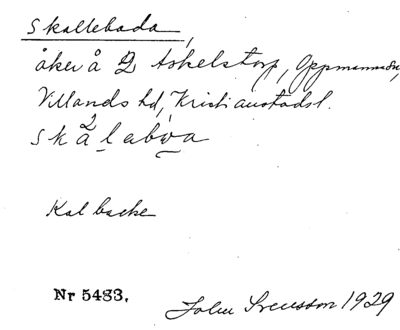 Skallebada,
åker å 2 Askelstorp, Oppmanna sn,
Villands hd, Kristianstads l.
skalabva
Kal backe
Nr 5483.
John Svensson 1929